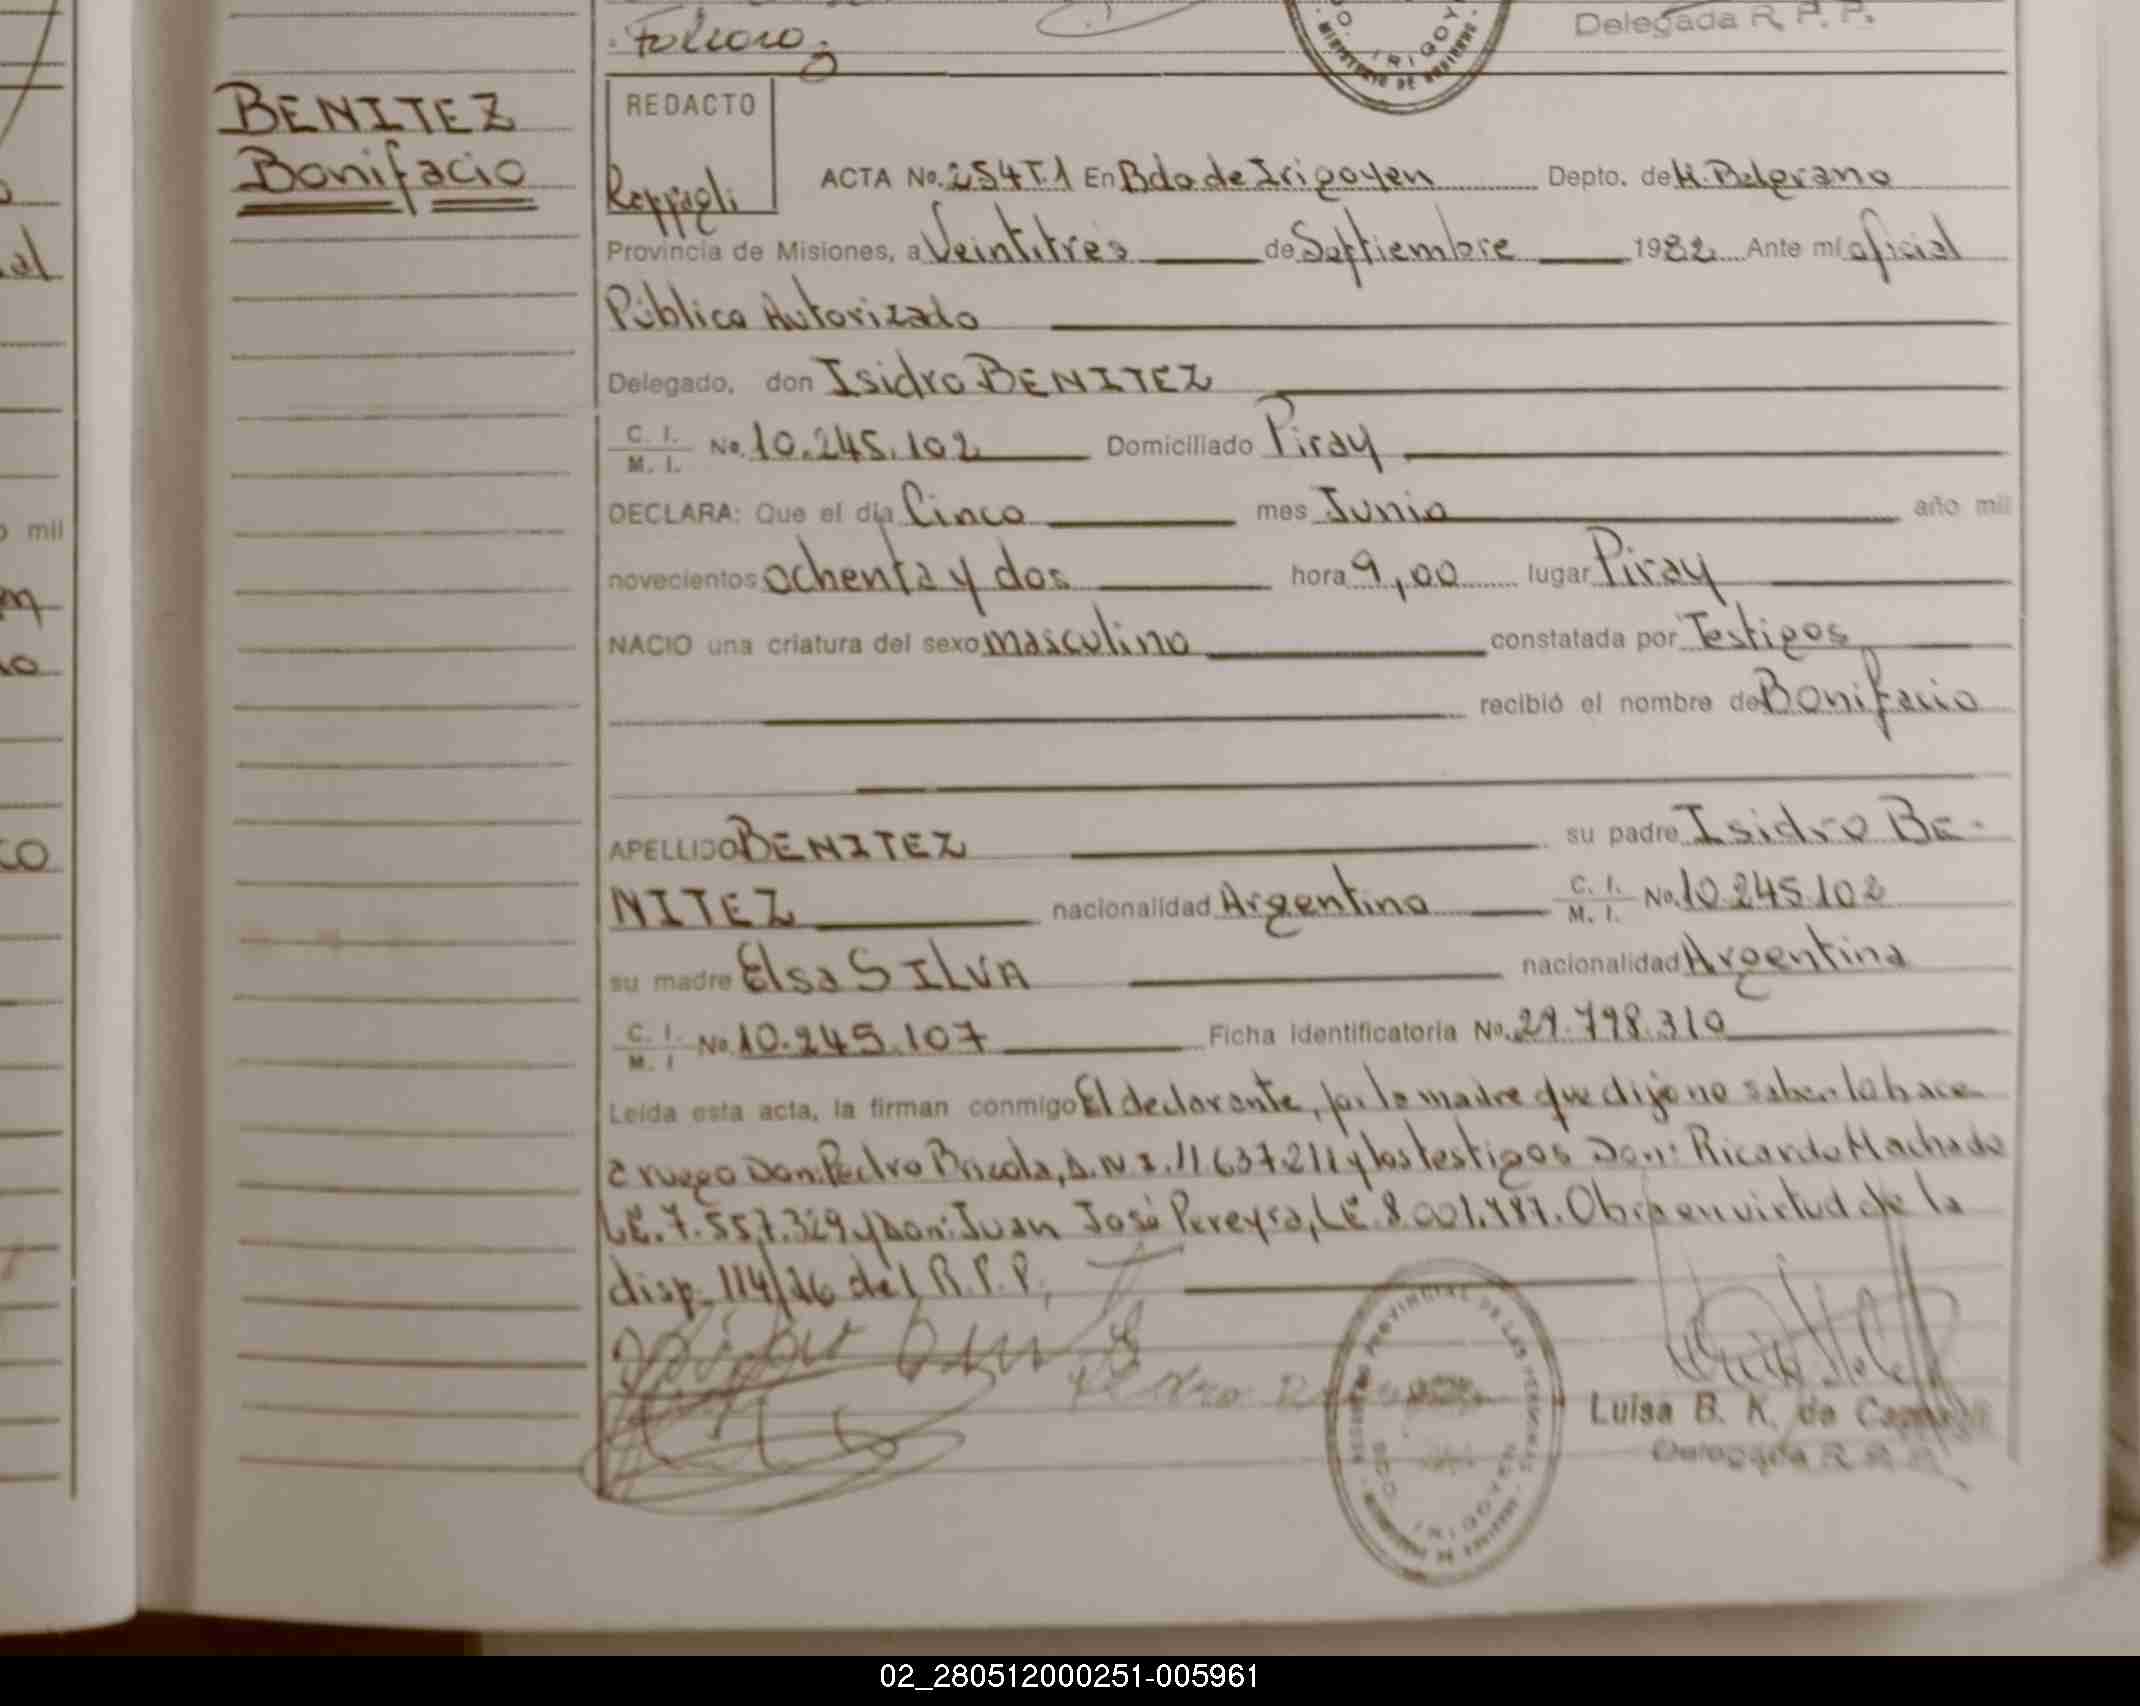 Delegada R. P. P.
BENITEZ
Bonifacio
REDACTO
ACTA No. 254 T.1 En Bdo de Irigoyen Depto. de M. Belgrano
Provincia de Misiones, a Veintitres de Septiembre 1982 Ante mí oficial
Público Autorizado
Delegado, don Isidro BENITEZ
C. I. M. I. No. 10.245.102 Domiciliado Piray
DECLARA: Que el día Cinco mes Junio año mil
novecientos ochenta y dos hora 9,00 lugar Piray
NACIO una criatura del sexo masculino constatada por Testigos
recibió el nombre de Bonifacio
APELLIDO BENITEZ su padre Isidro BE-
NITEZ nacionalidad Argentino C. I. M. I. No. 10.245.102
su madre Elsa SILVA nacionalidad Argentina
C. I. M. I No. 10.245.107 Ficha identificatoria No. 29.798.310
Leída esta acta, la firman conmigo El declarante, por la madre que dijo no saber lo hace
a ruego Don: Pedro Bricola, D.N.I. 11.637.211 y los testigos Don: Ricardo Machado
L.E. 7.557.329 y Don: Juan José Pereyra, L.E. 8.001.787. Obra en virtud de la
disp. 114/76 del R.P.P.
Luisa B. K. de
Delegada R. P. P.
02_280512000251-005961